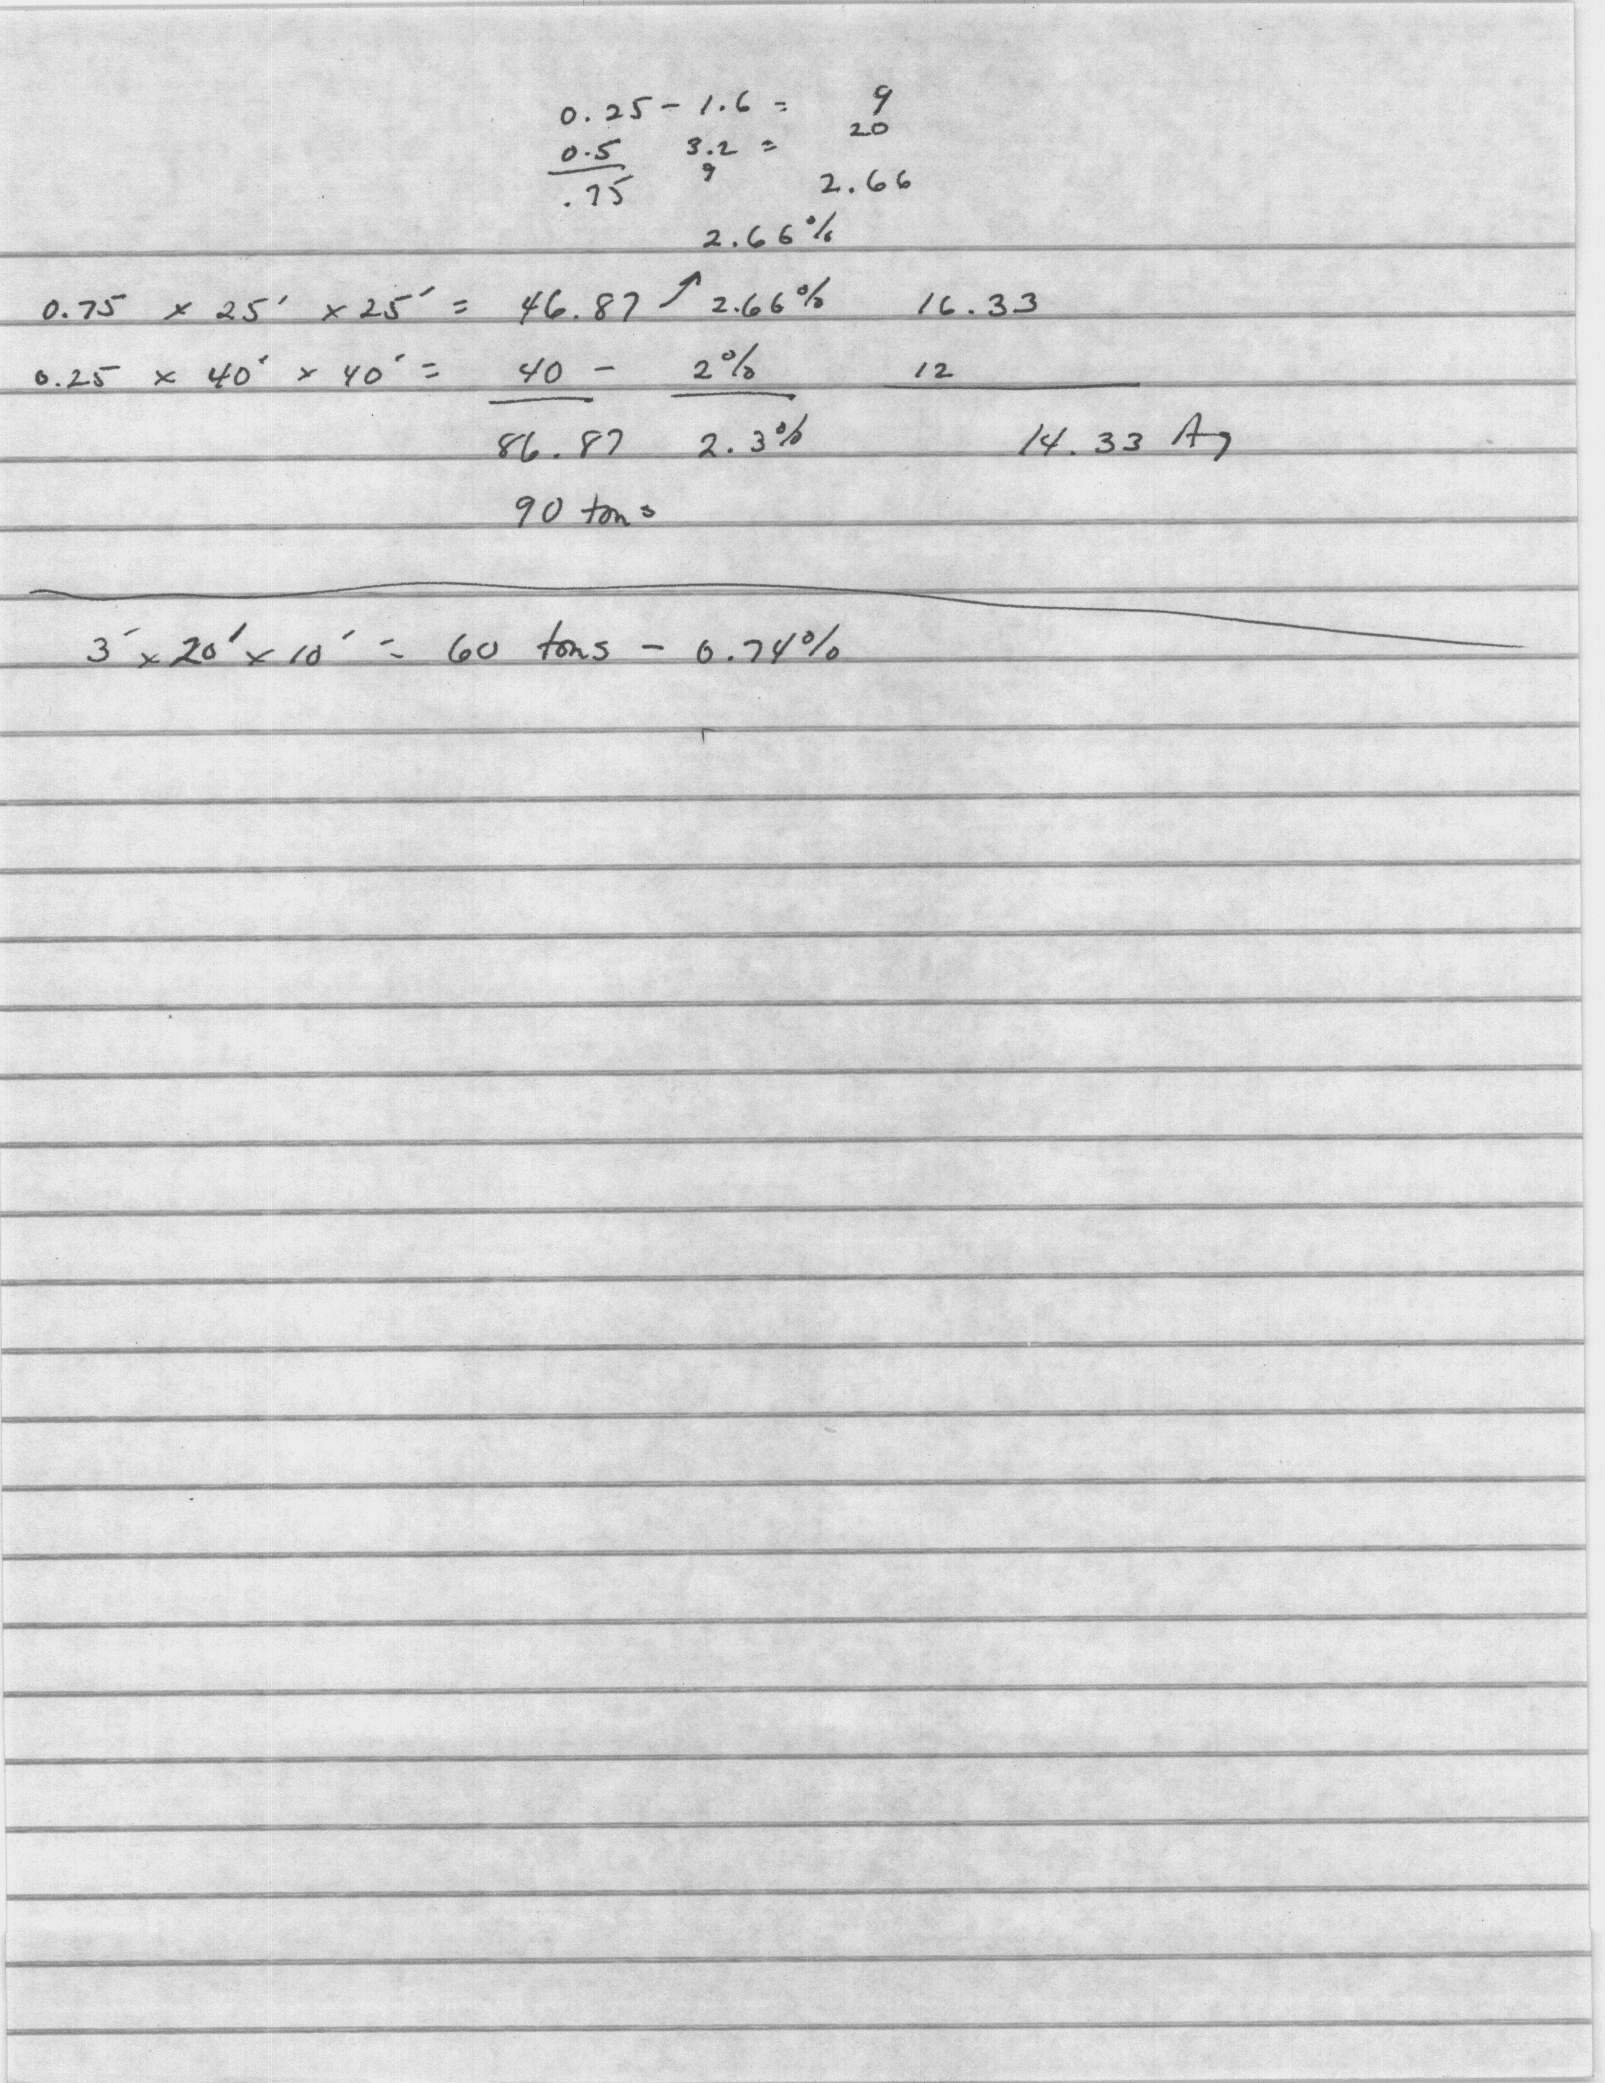 0.25 - 1.6 = 9
0.5 3.2 = 20
.75 9 2.66
2.66%
0.75 x 25' x 25' = 46.87 ↗ 2.66% 16.33
0.25 x 40' x 40' = 40 - 2% 12
86.87 2.3% 14.33 Ag
90 tons
3' x 20' x 10' = 60 tons - 0.74%